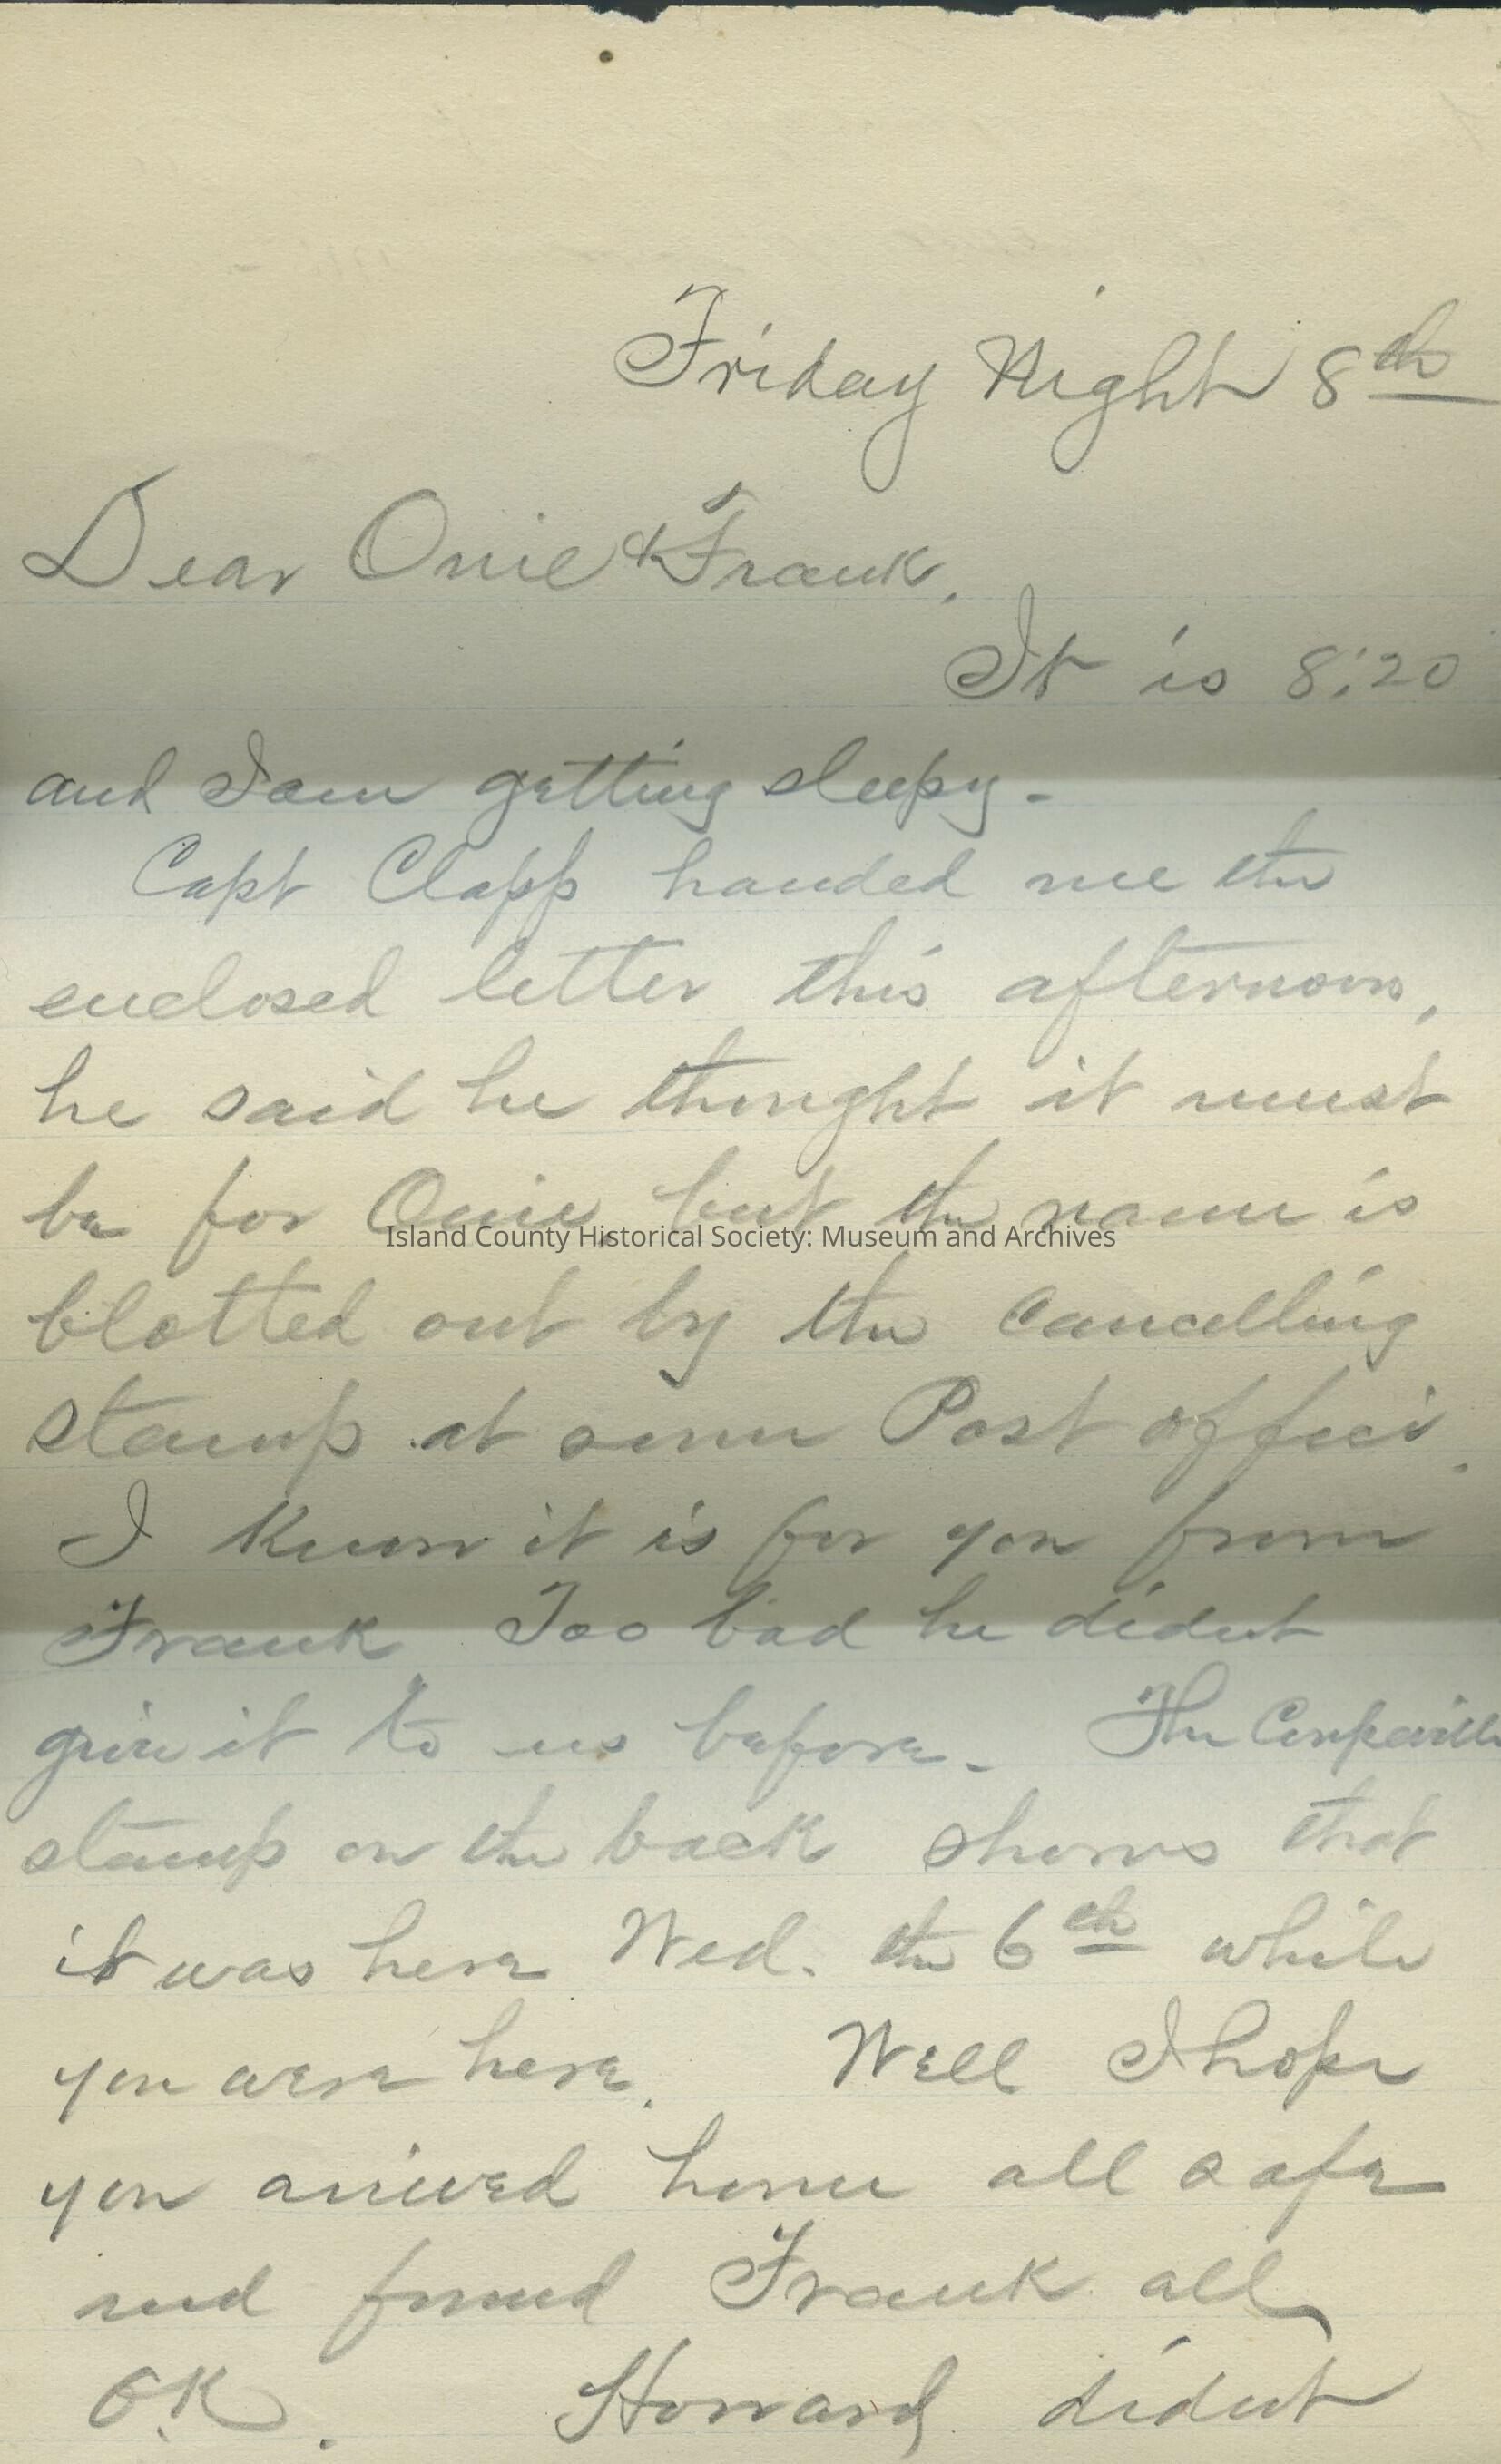 Friday Night 8th
Dear Onie & Frank,
It is 8:20
and I am getting sleepy-
Capt Clapp handed me the
enclosed letter this afternoon,
he said he thought it must
be for Onie but the name is
Island County Historical Society: Museum and Archives
blotted out by the Cancelling
stamp at some Post office.
I know it is for you from
Frank Too bad he didnt
give it to us before- The Coupeville
stamp on the back shows that
it was here Wed. the 6th while
you were here. Well I hope
you arrived home all safe
and found Frank all
O.K. Howard didnt